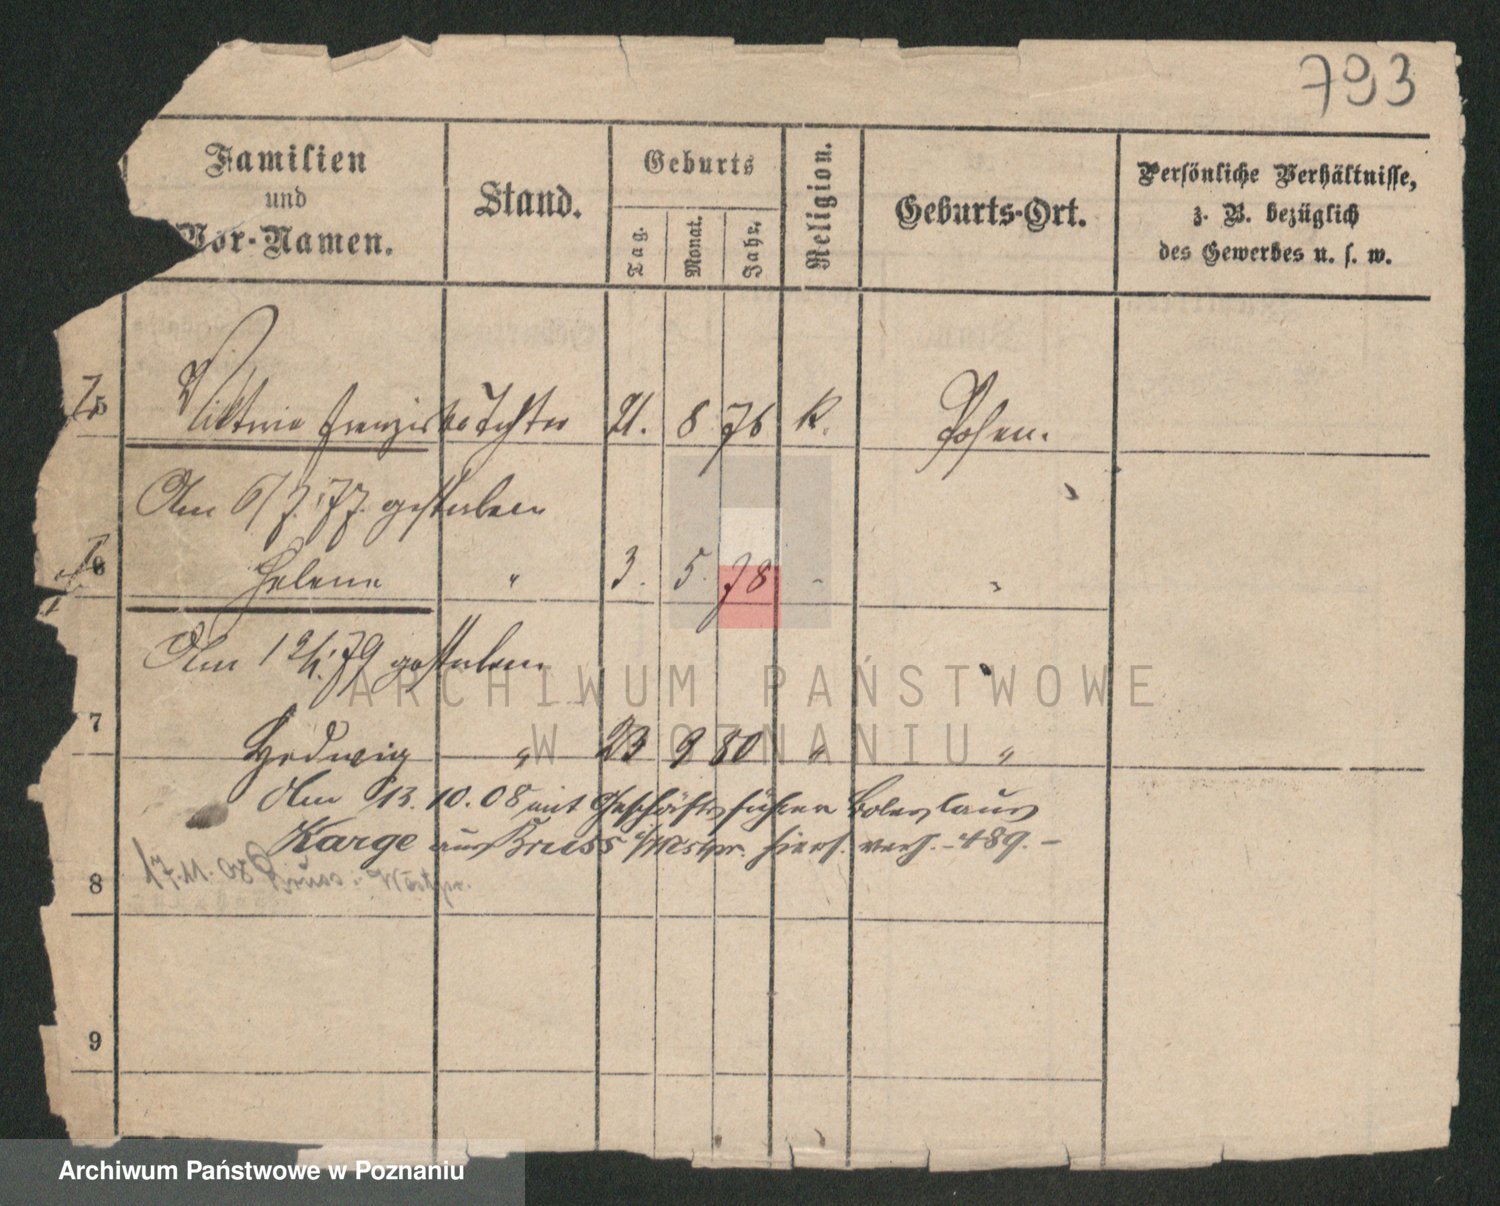 793
Familien
und
Vor-Namen.
Stand.
Geburts
Tag.
Monat.
Jahr.
Religion.
Geburts-Ort.
Persönliche Verhältnisse,
z. B. bezüglich
des Gewerbes u. s. w.
5 Viktoria Franziska Tochter 21. 8 76 K. Posen.
Am 6/7. 77. gestorben
6 Helene " 3. 5. 78 - "
Am 12/1. 79 gestorben
7 Hedwig " 23 9 80 " "
Am 13. 10. 08 mit Geschäftsführer Boleslaus
Karge aus Bruss i/Westpr. hiers. verh. - 489. -
8 17.11.08 Bruss i. Westpr.
9
ARCHIWUM PAŃSTWOWE
W POZNANIU
Archiwum Państwowe w Poznaniu